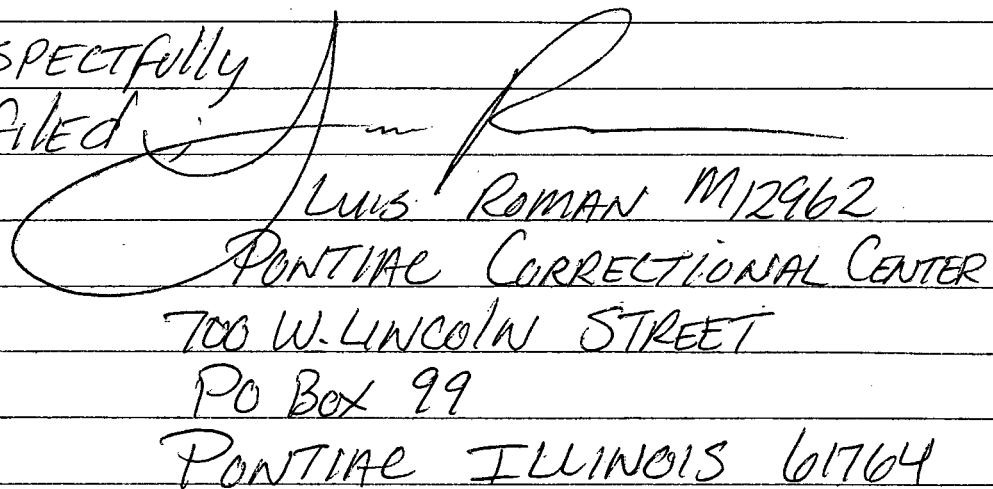 SPECTFully
FilEd
LUIS ROMAN M12962
PONTIAC CORRECTIONAL CENTER
700 W. LINCOlN STREET
PO BOX 99
PONTIAC ILLINOIS 61764